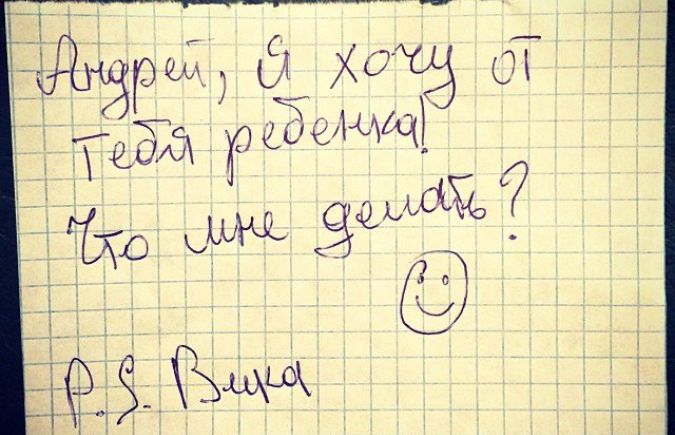 Андрей, я хочу от
тебя ребенка!
Что мне делать?
P.S. Вика